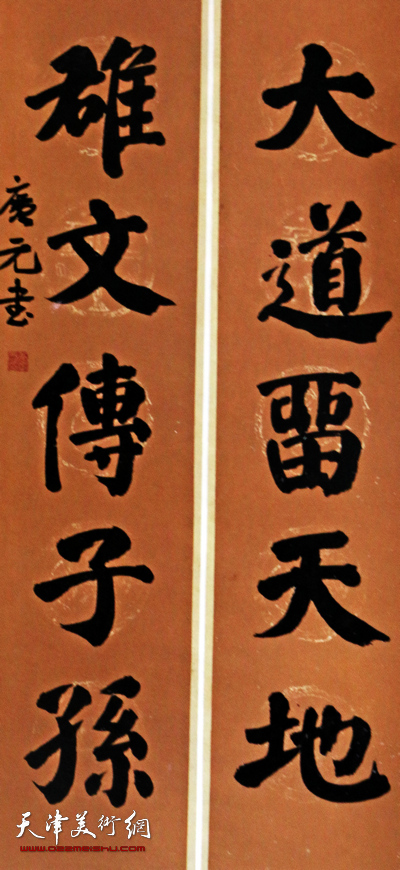 大道畱天地
雄文傳子孫
廣元书
天津美術網
www.022meishu.com